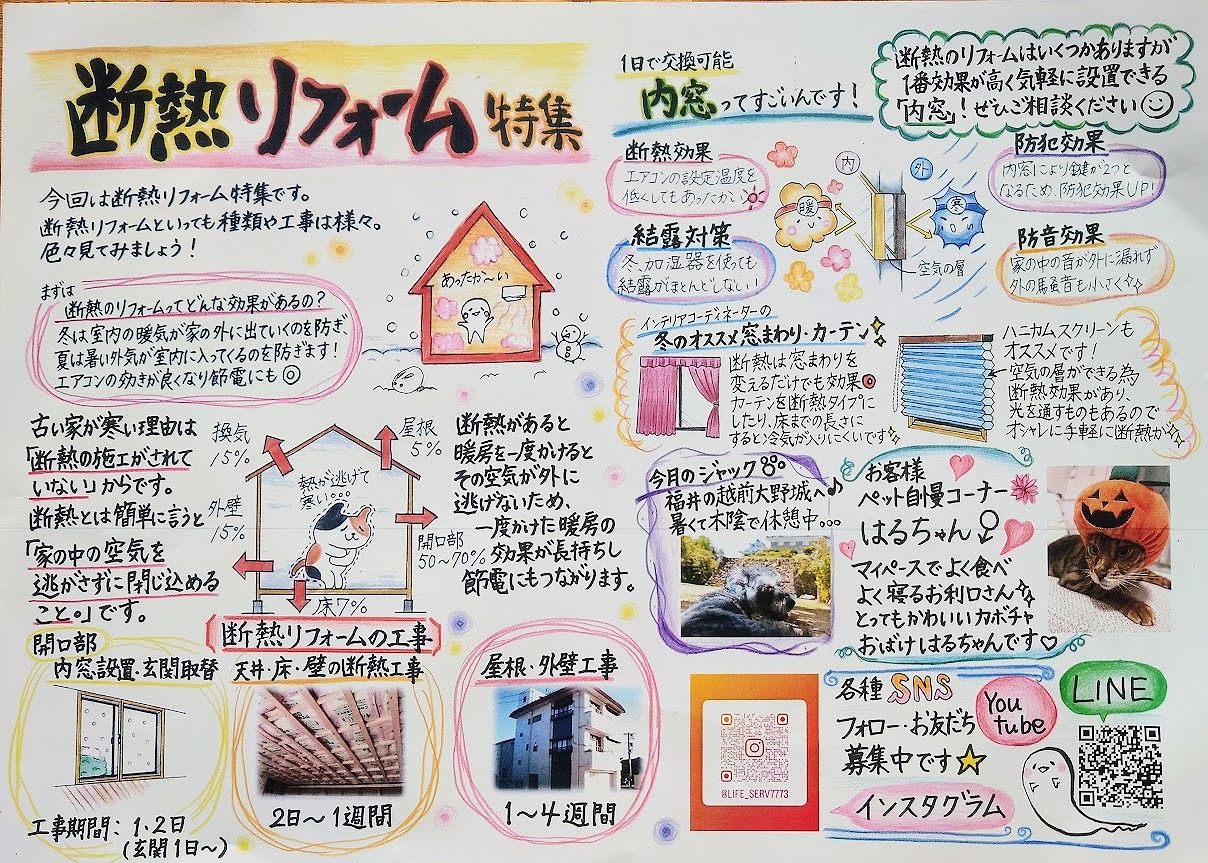 断熱リフォーム特集
今回は断熱リフォーム特集です。
断熱リフォームといっても種類や工事は様々。
色々見てみましょう!
まずは
断熱のリフォームってどんな効果があるの?
冬は室内の暖気が家の外に出ていくのを防ぎ、
夏は暑い外気が室内に入ってくるのを防ぎます!
エアコンの効きが良くなり節電にも◎
あったか〜い
古い家が寒い理由は
「断熱の施工がされて
いない」からです。
断熱とは簡単に言うと
「家の中の空気を
逃がさずに閉じ込める
こと。」です。
換気
15%
屋根
5%
外壁
15%
熱が逃げて
寒い。。。
開口部
50~70%
床7%
断熱があると
暖房を一度かけると
その空気が外に
逃げないため、
一度かけた暖房の
効果が長持ちし
節電にもつながります。
断熱リフォームの工事
開口部
内窓設置・玄関取替
工事期間:1、2日
(玄関1日~)
天井・床・壁の断熱工事
2日~1週間
屋根・外壁工事
1~4週間
1日で交換可能
内窓ってすごいんです!
断熱のリフォームはいくつかありますが
1番効果が高く気軽に設置できる
「内窓」!ぜひご相談ください
断熱効果
エアコンの設定温度を
低くしてもあったかい
結露対策
冬、加湿器を使っても
結露がほとんどしない!
内
外
暖
寒
空気の層
防犯効果
内窓により鍵が2つと
なるため、防犯効果UP!
防音効果
家の中の音が外に漏れず
外の騒音も小さく
インテリアコーディネーターの
冬のオススメ窓まわり・カーテン
断熱は窓まわりを
変えるだけでも効果◎
カーテンを断熱タイプに
したり、床までの長さに
すると冷気が入りにくいです
ハニカムスクリーンも
オススメです!
空気の層ができる為
断熱効果があり、
光を通すものもあるので
オシャレに手軽に断熱が
今月のジャック
福井の越前大野城へ♪
暑くて木陰で休憩中。。。
お客様
ペット自慢コーナー
はるちゃん♂
マイペースでよく食べ
よく寝るお利口さん
とってもかわいいカボチャ
おばけはるちゃんです♡
@LIFE_SERV7773
各種SNS
フォロー・お友だち
募集中です☆
YouTube
LINE
インスタグラム